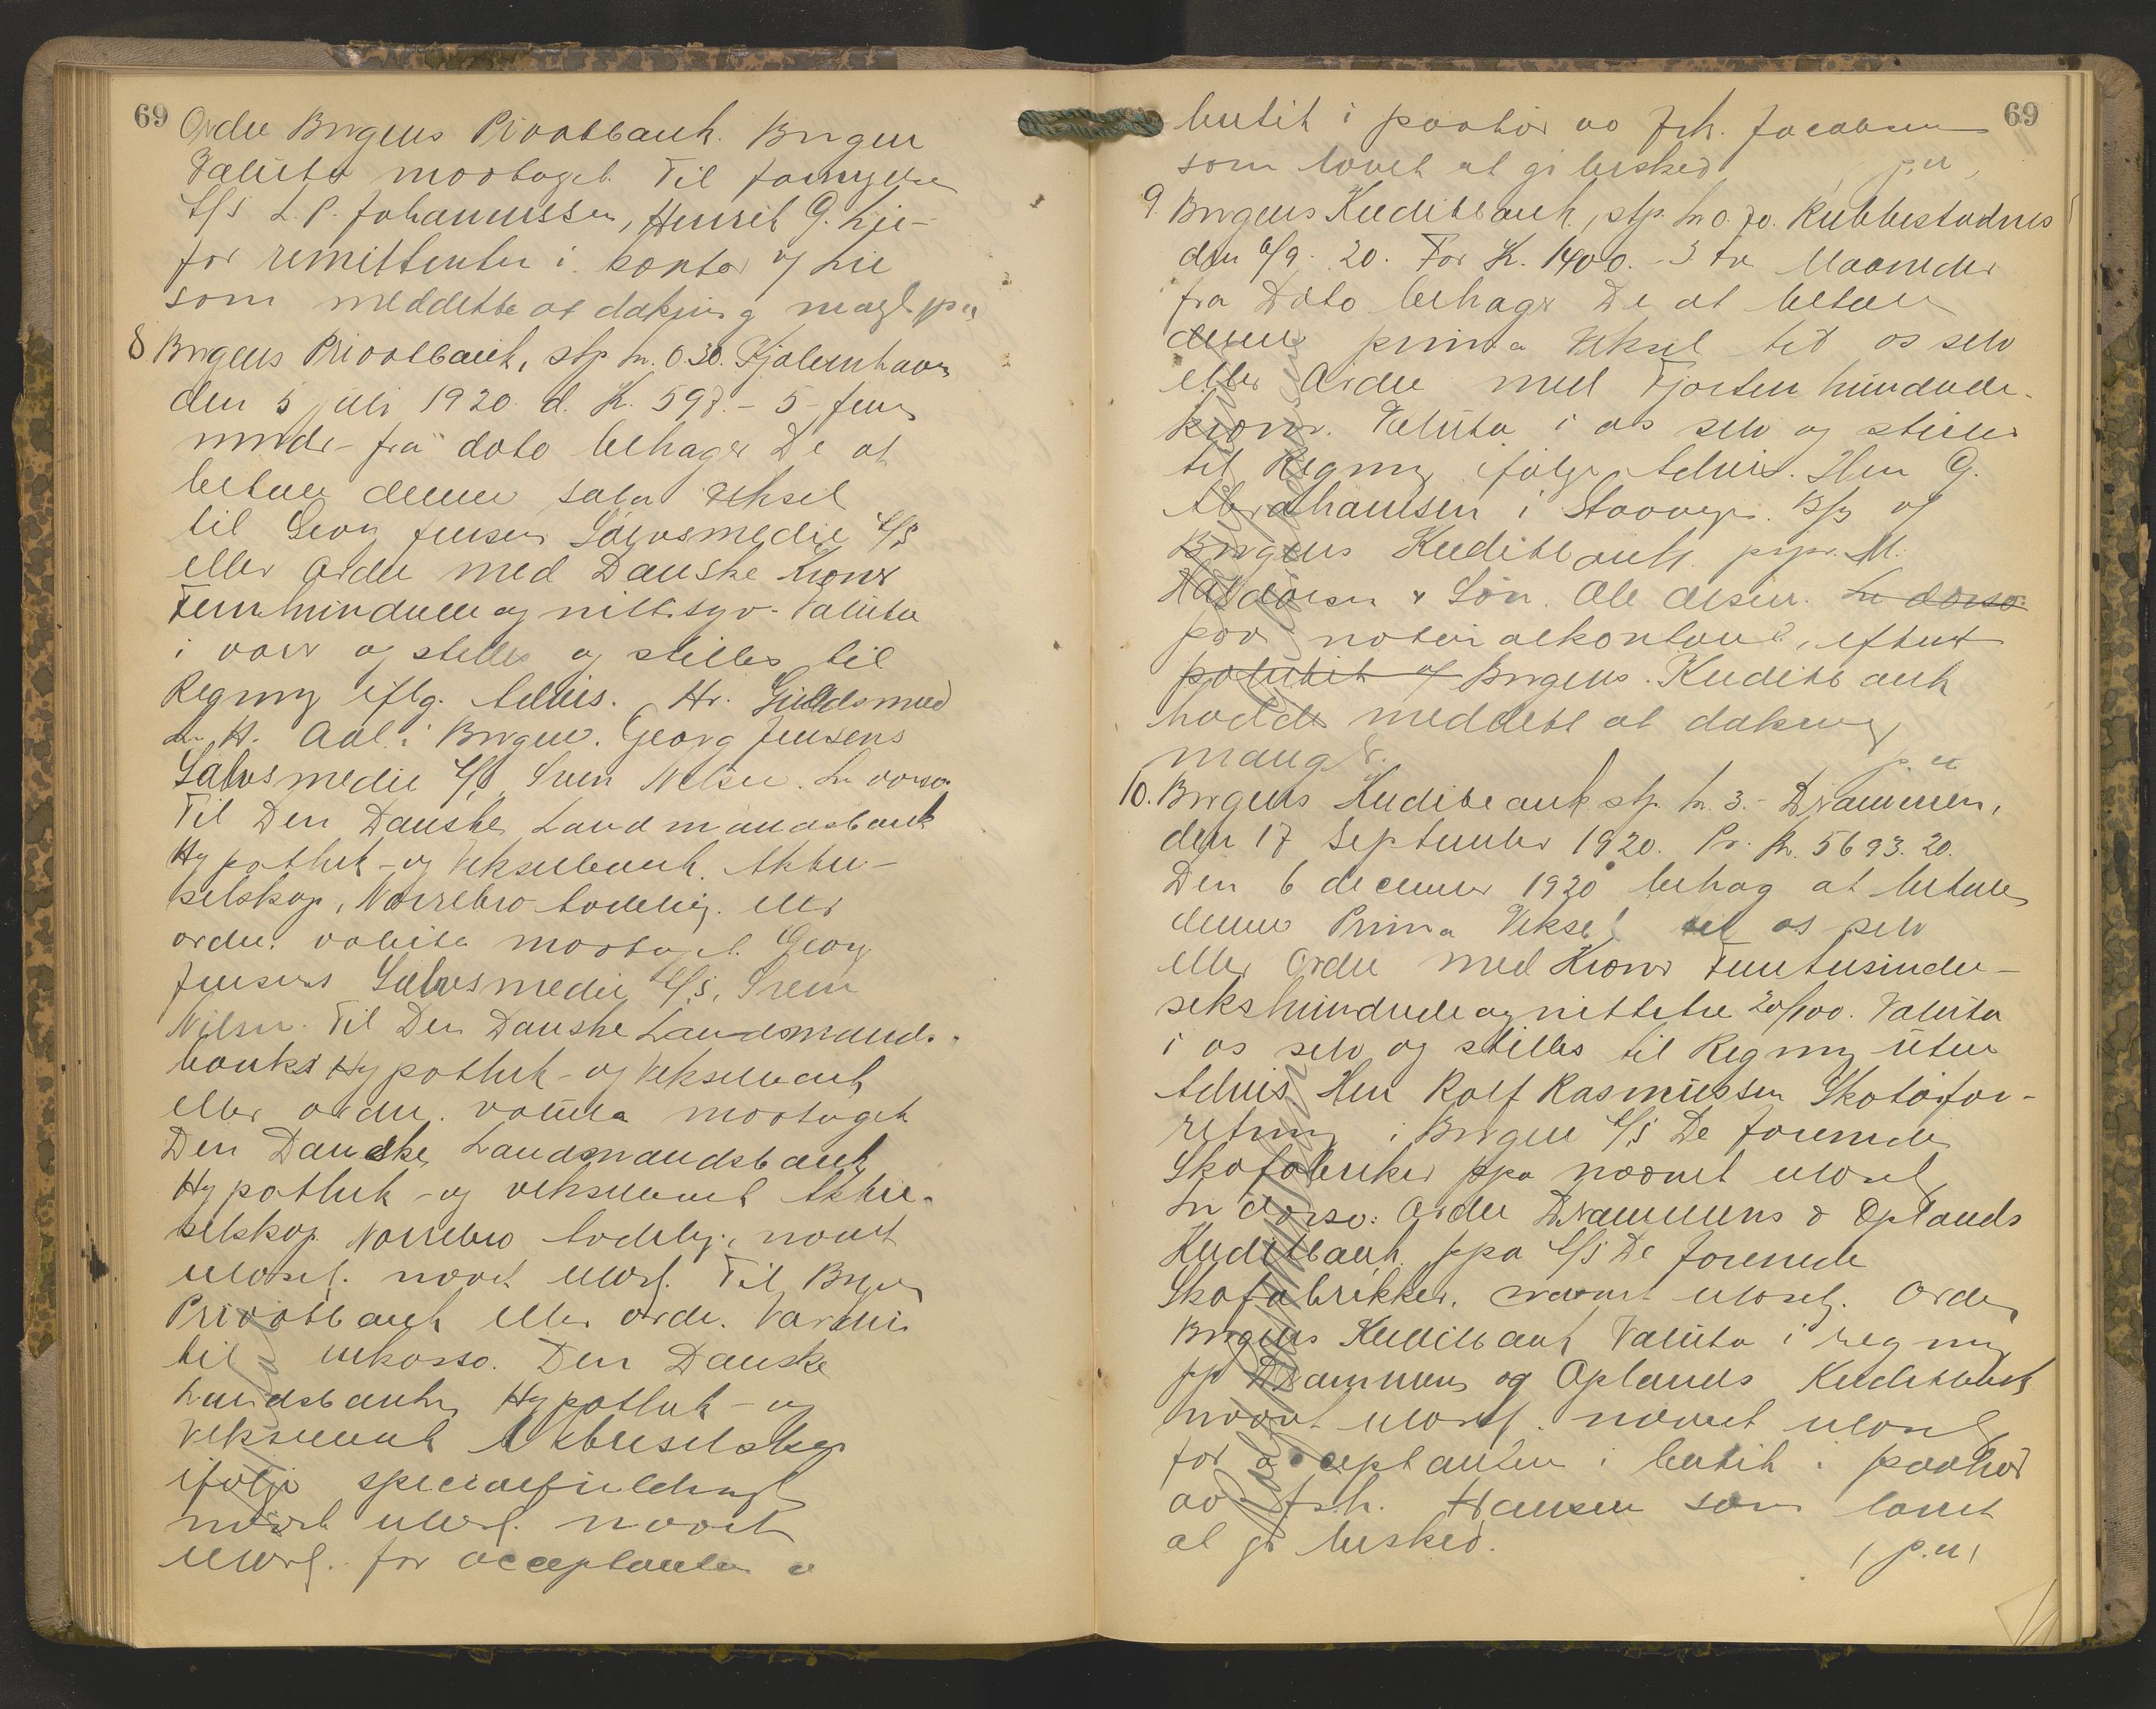 69
Ordre Bergens Privatbank. Bergen
Valuta mottaget. Til fornyelse
A/S L. P. Johannessen, Henrik G. Lie –
for remittenten i kontor og Lie
som meddelte at dækning mangl. p.u
8 Bergens Privatbank, stp. kr. 0.30. Kjøbenhavn
den 5 juli 1920. d. K. 597.– 5– fem
mndr– fra dato behager De at
betale denne sola veksel
til Georg Jensens Sølvsmedie A/S
eller ordre med Danske Kroner
Femhundrede og nittisyv. Valuta
i varer og stilles og stilles til
Regning iflg. Advis. Hr. Guldsmed
H. Aal i Bergen. Georg Jensens
Sølvsmedie A/S Sven Nelsen. In dorso.
Til Den Danske Landmandsbank
Hypothek- og Vekselbank. Aktie-
selskap, Nørrebro Avdeling. eller
ordre. valuta mottaget. Georg
Jensens Sølvsmedie A/S, Sven
Nilsen. Til Den Danske Landsmands-
banks Hypothek- og Vekselbank
eller ordre. valuta mottaget
Den Danske Landsmandsbank
Hypothek- og vekselbank Aktie-
selskap. Nørrebro Avdeling, navnet
ulæsel. navnet ulæsl. Til Bergens
Privatbank eller ordre. Værdi
til inkasso. Den Danske
Landsbanken Hypothek- og
Vekselbank Aktieselskap
ifølge specialfuldmagt
navnet ulæsl. navnet
ulæsl. for acceptanten i
69
butik i paahør av frk. Jacobsen
som lovet at gi besked p.u,
9. Bergens Kreditbank, stp. kr 0.70. Rubbestadnes
den 6/9. 20. For K. 1400.- 3 tre Maaneder
fra Dato behager De at betale
denne prima Veksel til os selv
eller Ordre med Fjorten hundrede
kroner. Valuta i os selv og stilles
til Regning ifølge Advis. Herr G.
Abrahamsen i Stavanger. B/B og
Bergens Kreditbank. pr.pr. M.
Haldorsen & Søn. Ole Olsen. In dorso:
paa notarialkontoret, efterat
Bergens Kreditbank
hadde meddelt at dækning
mangler. p.u
10. Bergens Kreditbank stp. kr. 3.– Drammen,
den 17 September 1920. Pr. K. 5693.20.
Den 6 december 1920 behag at betale
denne Prima Veksel til os selv
eller Ordre med Kroner Femtusinde–
sekshundrede og nittitre 20/100. Valuta
i os selv og stilles til Regning uten
Advis. Herr Rolf Rasmussen Skotøifor-
retning i Bergen A/S De forenede
Skofabriker ppa navnet ulæsel.
In dorso: Ordre Drammens & Oplands
Kreditbank. ppa A/S De forenede
Skofabrikker. navnet ulæsel. Ordre
Bergens Kreditbank Valuta i regning
pp Drammens og Oplands Kreditbank
navnet ulæsel. navnet ulæsel
for acceptanten i butik i paahør
av frk. Hansen som lovet
at gi besked. , p.u,